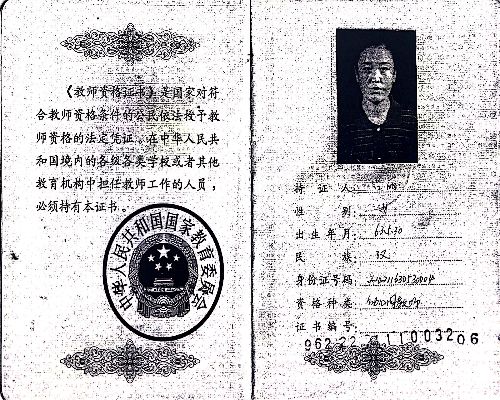 《教师资格证书》是国家对符
合教师资格条件的公民依法授予教
师资格的法定凭证。在中华人民共
和国境内的各级各类学校或者其他
教育机构中担任教师工作的人员，
必须持有本证书。
中华人民共和国国家教育委员会
持证人
性别
出生年月 63.5.30
民族 汉
身份证号码
资格种类
证书编号